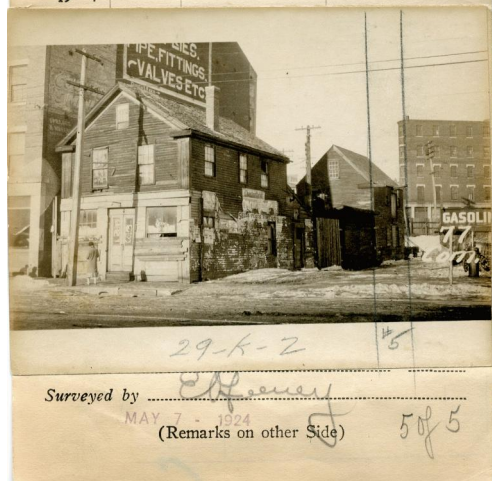 PIPE, FITTINGS,
VALVES, ETC
GASOLI
77
Com
29-K-2
#5
Surveyed by
MAY 7 - 1924
(Remarks on other Side)
5 of 5